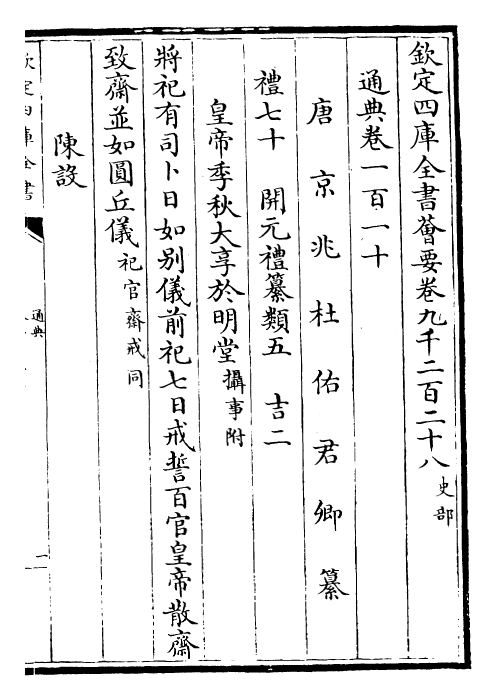 欽定四庫全書薈要卷九千二百二十八史部
通典卷一百一十
唐京兆杜佑君卿纂
禮七十 開元禮纂類五 吉二
皇帝季秋大享於明堂攝事附
將祀有司卜日如別儀前祀七日戒誓百官皇帝散齋
致齋並如圓丘儀祀官齋戒同
陳設
欽定四庫全書
通典
一